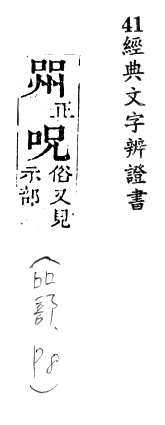 41 經典文字辨證書
喌正呪俗又見示部
(吅部, p8)